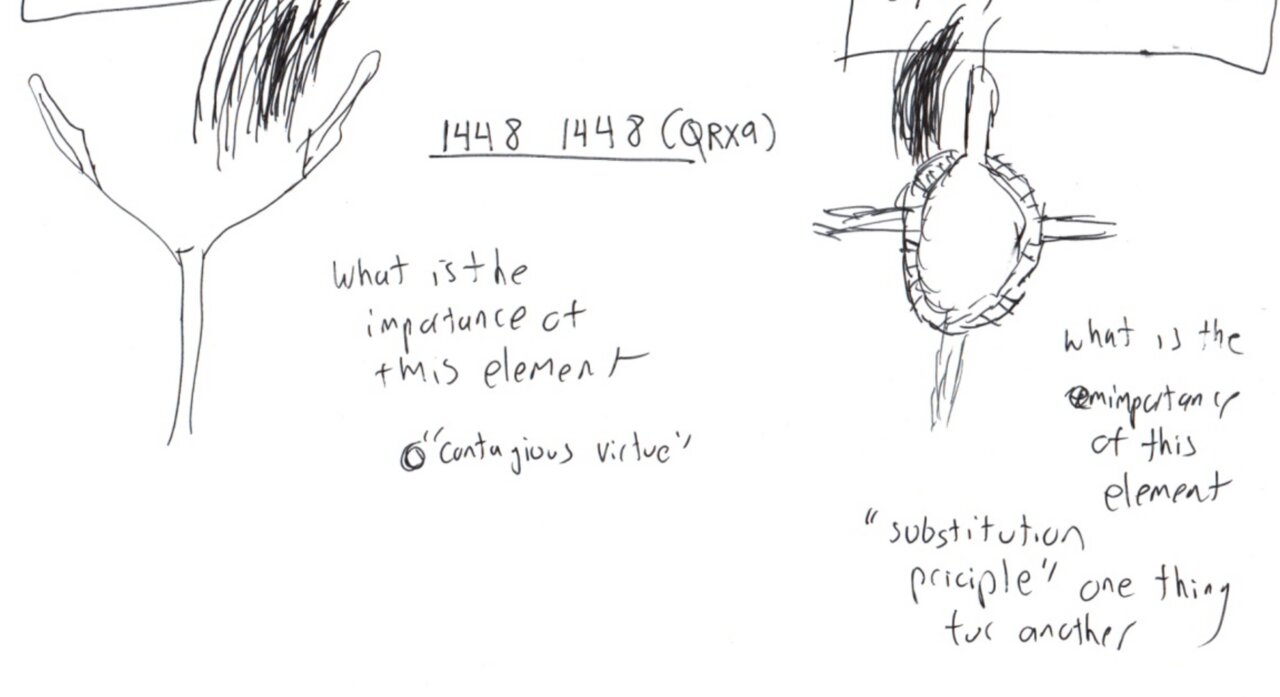 1448 1448 (QRX9)
what is the
impatance of
this element
"contagious virtue"
what is the
mimpartance
of this
element
"substitution
priciple" one thing
for another